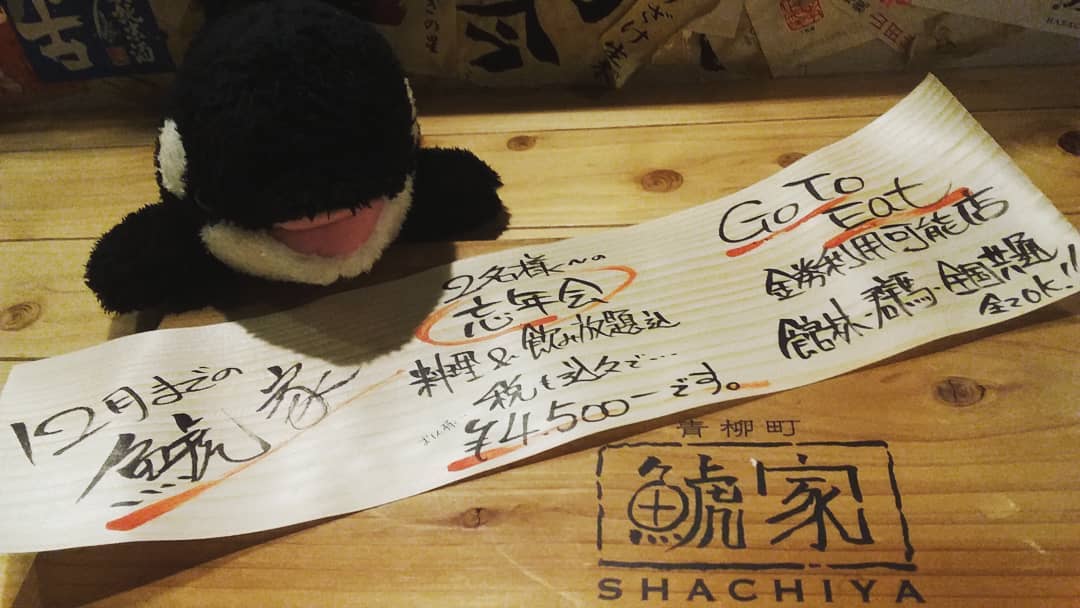 12月までの
鯱家
2名様〜の
忘年会
料理&飲み放題込
税も込々で…
¥4.500-です。
Go To
Eat
金券利用可能店
館林・群馬・全国共通
全てOK!!
青柳町
鯱家
SHACHIYA